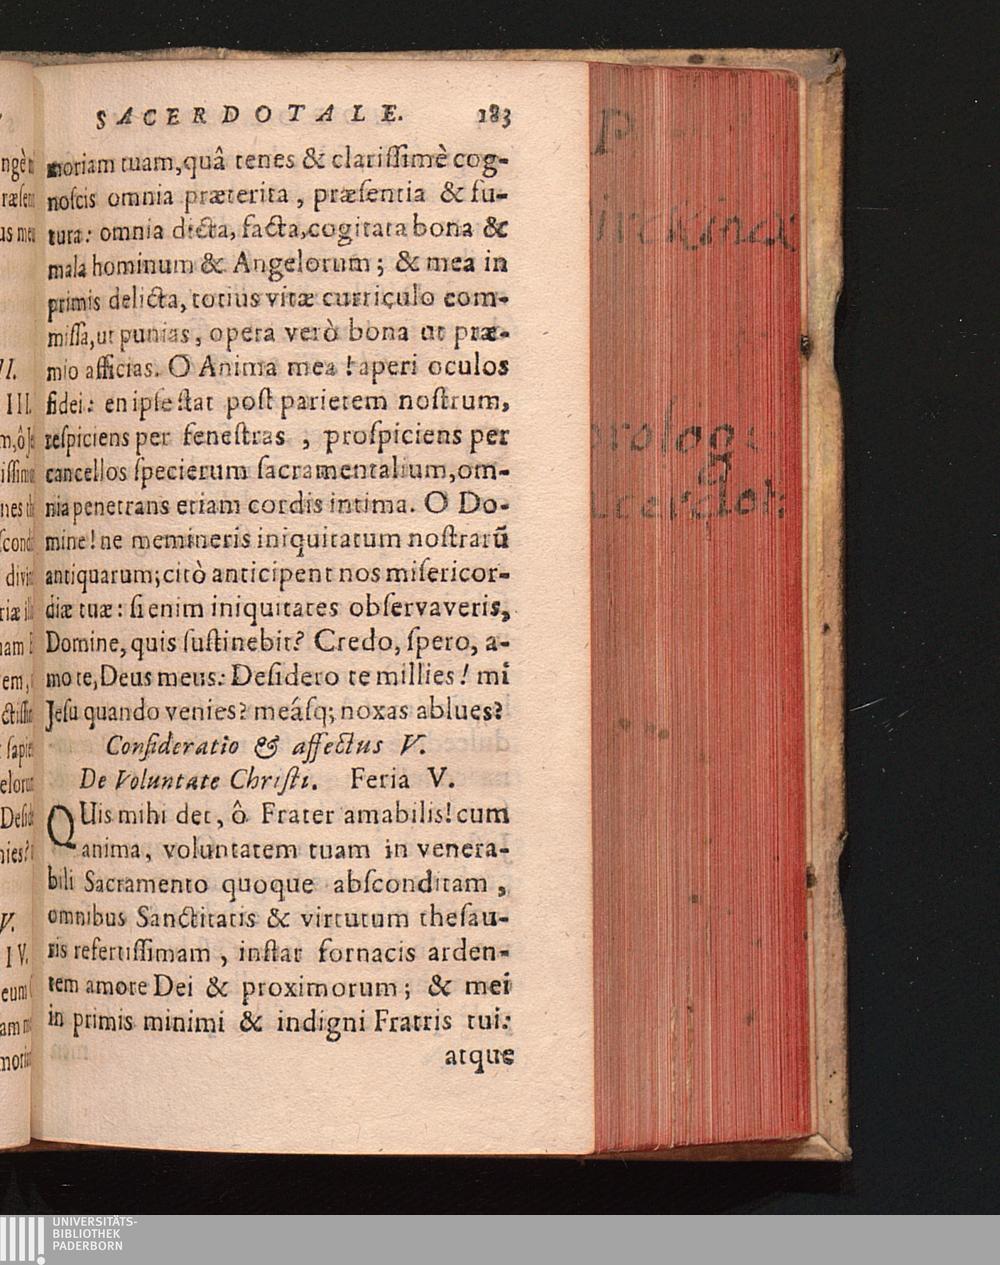 SACERDOTALE. 183
moriam tuam, quâ tenes & clarissimè cog-
noscis omnia præterita, præsentia & fu-
tura: omnia dicta, facta, cogitata bona &
mala hominum & Angelorum; & mea in
primis delicta, totius vitæ curriculo com-
missa, ut punias, opera verò bona ut præ-
mio afficias. O Anima mea! aperi oculos
fidei: en ipse stat post parietem nostrum,
respiciens per fenestras, prospiciens per
cancellos specierum sacramentalium, om-
nia penetrans etiam cordis intima. O Do-
mine! ne memineris iniquitatum nostrarũ
antiquarum; citò anticipent nos misericor-
diæ tuæ: si enim iniquitates observaveris,
Domine, quis sustinebit? Credo, spero, a-
mo te, Deus meus: Desidero te millies! mi
Jesu quando venies? meásq; noxas ablues?
Consideratio & affectus V.
De Voluntate Christi. Feria V.
QUis mihi det, ô Frater amabilis! cum
anima, voluntatem tuam in venera-
bili Sacramento quoque absconditam,
omnibus Sanctitatis & virtutum thesau-
ris refertissimam, instar fornacis arden-
tem amore Dei & proximorum; & mei
in primis minimi & indigni Fratris tui:
atque
UNIVERSITÄTS-
BIBLIOTHEK
PADERBORN